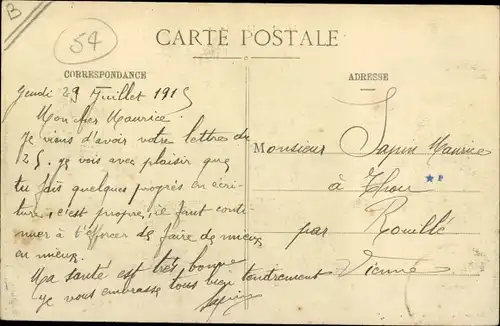 B
54
CARTE POSTALE
CORRESPONDANCE
ADRESSE
Jeudi 29 Juillet 1915
Mon cher Maurice.
Je viens d'avoir votre lettre du
25. je vois avec plaisir que
tu fais quelques progrès en écri-
ture, c'est propre, il faut conti-
nuer à t'efforcer de faire de mieux
en mieux.
Ma santé est très bonne
je vous embrasse tous bien tendrement
Sapin
Monsieur Sapin Maurice
à Thou
par Rouillé
Vienne